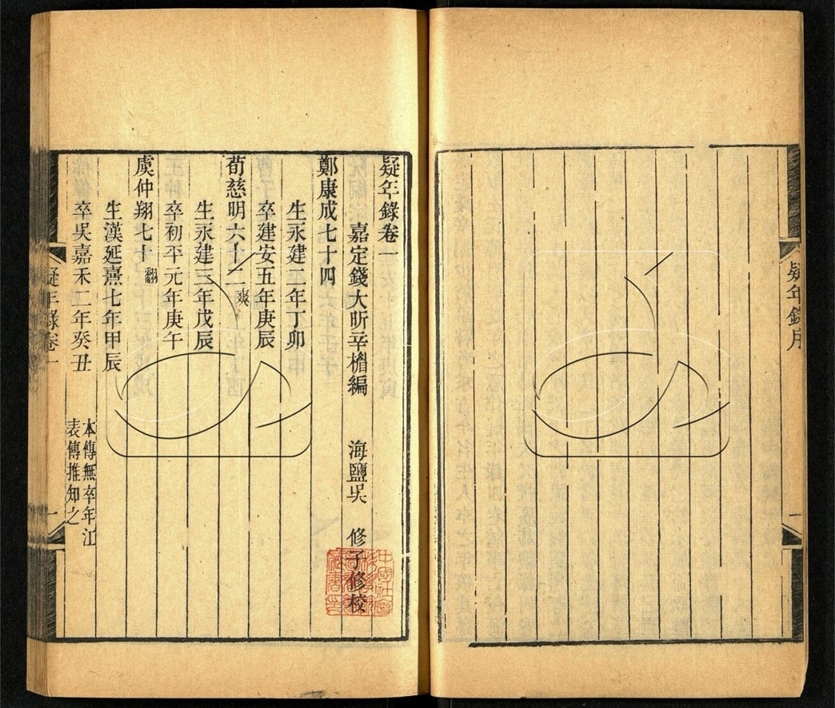 疑年錄序
疑年錄卷一
嘉定錢大昕辛楣編 海鹽吳 修子修校
鄭康成七十四
生永建二年丁卯
卒建安五年庚辰
荀慈明六十二爽
生永建三年戊辰
卒初平元年庚午
虞仲翔七十翻
生漢延熹七年甲辰
卒吳嘉禾二年癸丑 本傳無卒年江
表傳推知之
疑年錄卷一
一